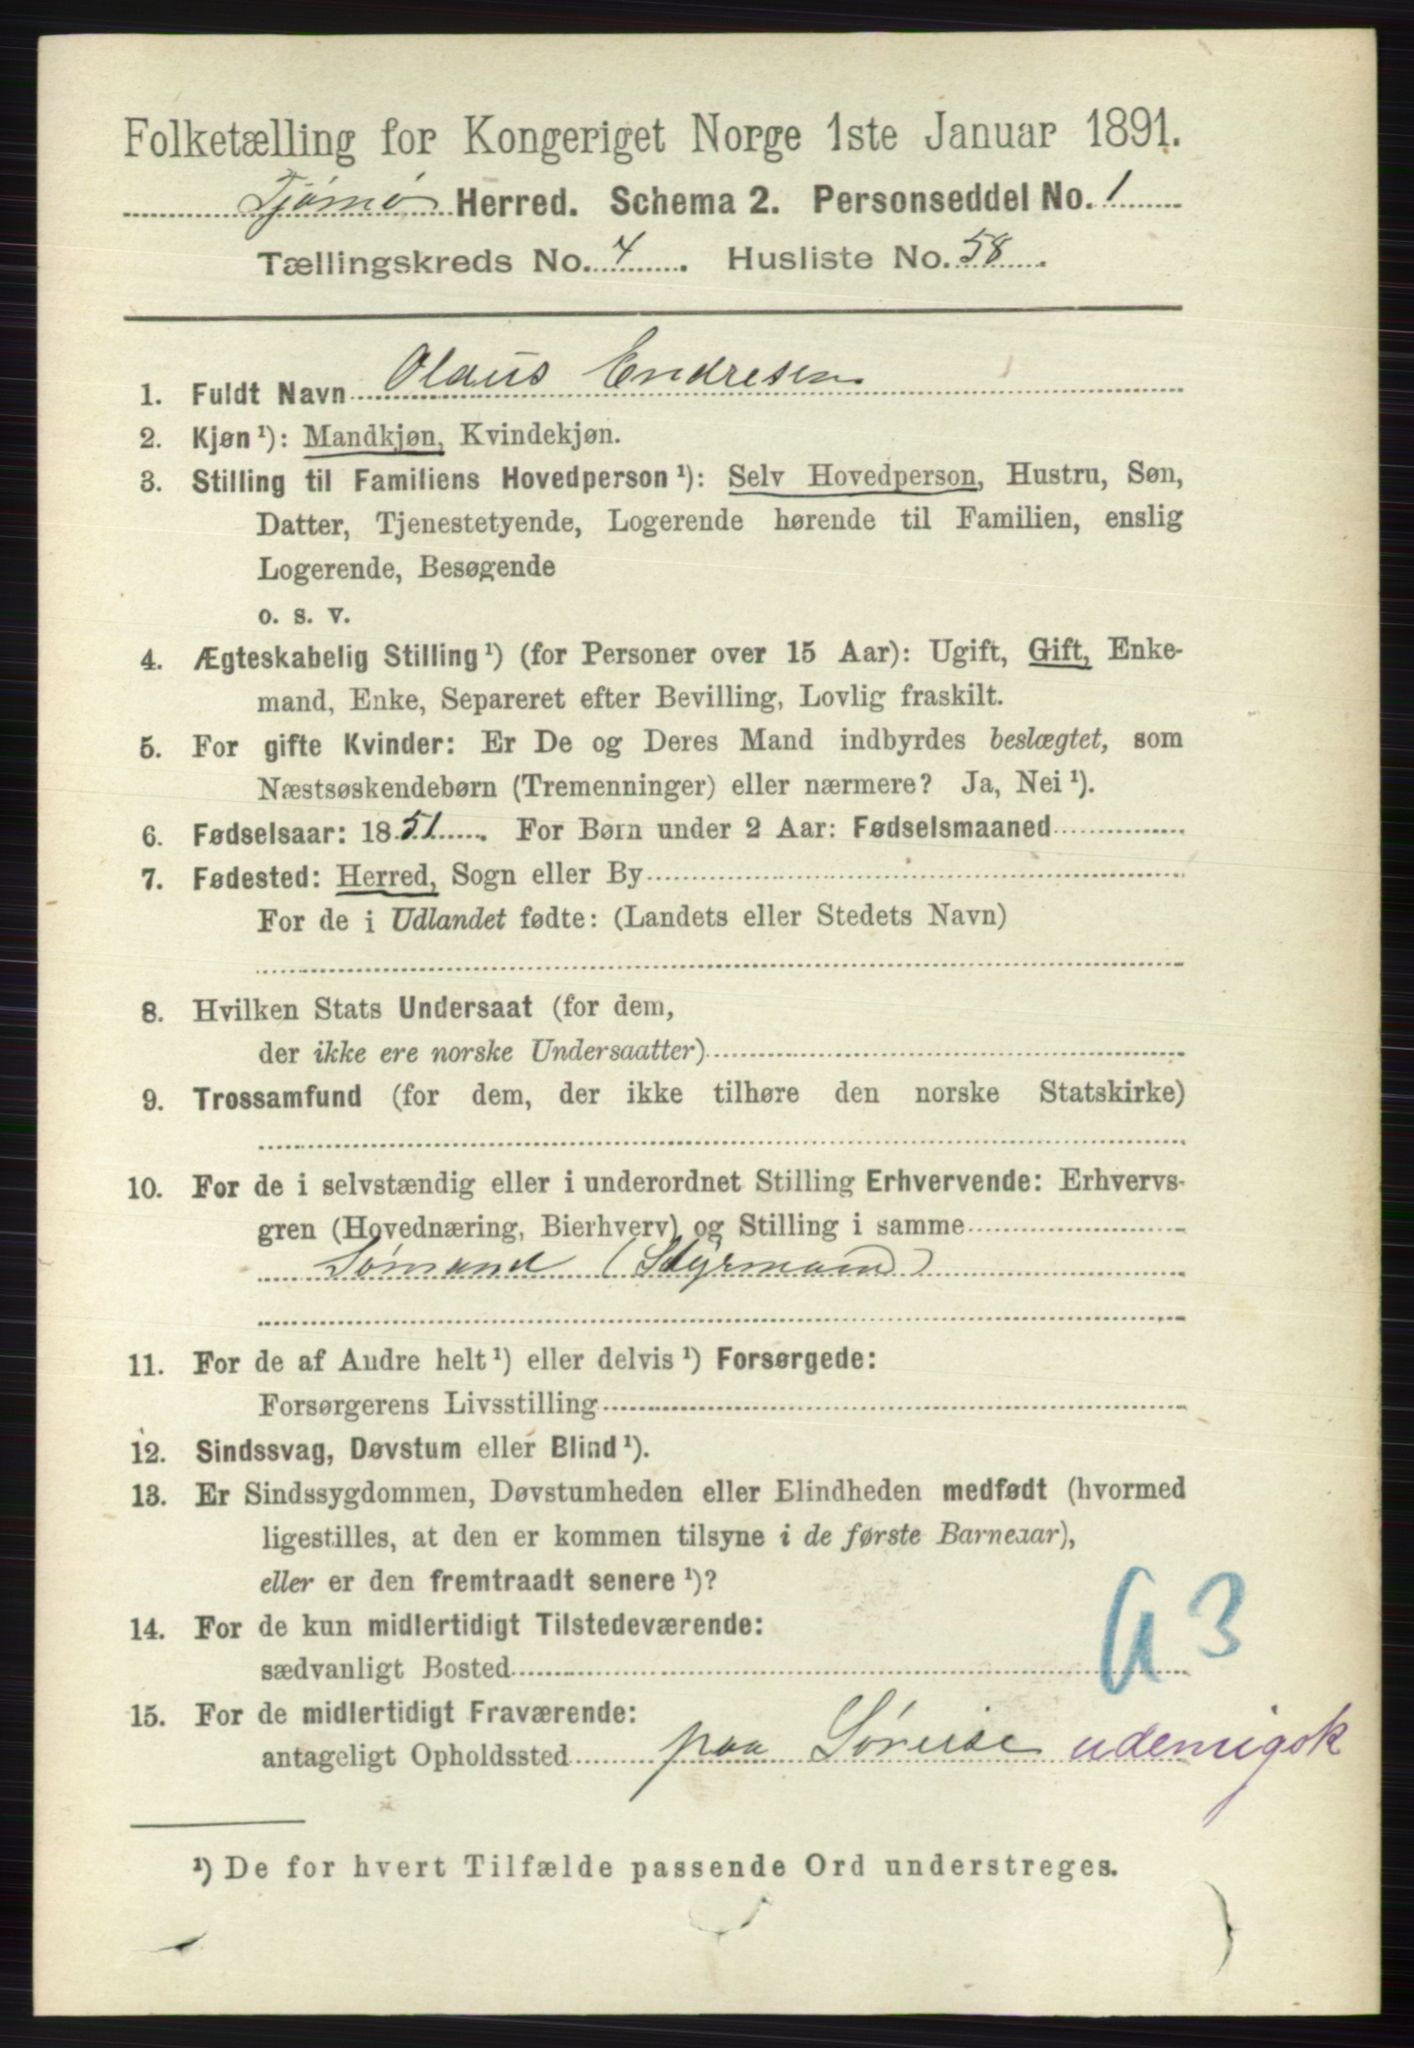 Folketælling for Kongeriget Norge 1ste Januar 1891.
Tjømø Herred. Schema 2. Personseddel No. 1
Tællingskreds No. 4. Husliste No. 58.
1. Fuldt Navn Olaus Endresen
2. Kjøn¹): Mandkjøn, Kvindekjøn.
3. Stilling til Familiens Hovedperson¹): Selv Hovedperson, Hustru, Søn,
Datter, Tjenestetyende, Logerende hørende til Familien, enslig
Logerende, Besøgende
o. s. v.
4. Ægteskabelig Stilling¹) (for Personer over 15 Aar): Ugift, Gift, Enke-
mand, Enke, Separeret efter Bevilling, Lovlig fraskilt.
5. For gifte Kvinder: Er De og Deres Mand indbyrdes beslægtet, som
Næstsøskendebørn (Tremenninger) eller nærmere? Ja, Nei¹).
6. Fødselsaar: 1851. For Børn under 2 Aar: Fødselsmaaned
7. Fødested: Herred, Sogn eller By
For de i Udlandet fødte: (Landets eller Stedets Navn)
8. Hvilken Stats Undersaat (for dem,
der ikke ere norske Undersaatter)
9. Trossamfund (for dem, der ikke tilhøre den norske Statskirke)
10. For de i selvstændig eller i underordnet Stilling Erhvervende: Erhvervs-
gren (Hovednæring, Bierhverv) og Stilling i samme
Sømand (Styrmand)
11. For de af Andre helt¹) eller delvis¹) Forsørgede:
Forsørgerens Livsstilling
12. Sindssvag, Døvstum eller Blind¹).
13. Er Sindssygdommen, Døvstumheden eller Blindheden medfødt (hvormed
ligestilles, at den er kommen tilsyne i de første Barneaar),
eller er den fremtraadt senere¹)?
14. For de kun midlertidigt Tilstedeværende:
sædvanligt Bosted
G 3
15. For de midlertidigt Fraværende:
antageligt Opholdssted paa Søreise udenrigsk
¹) De for hvert Tilfælde passende Ord understreges.